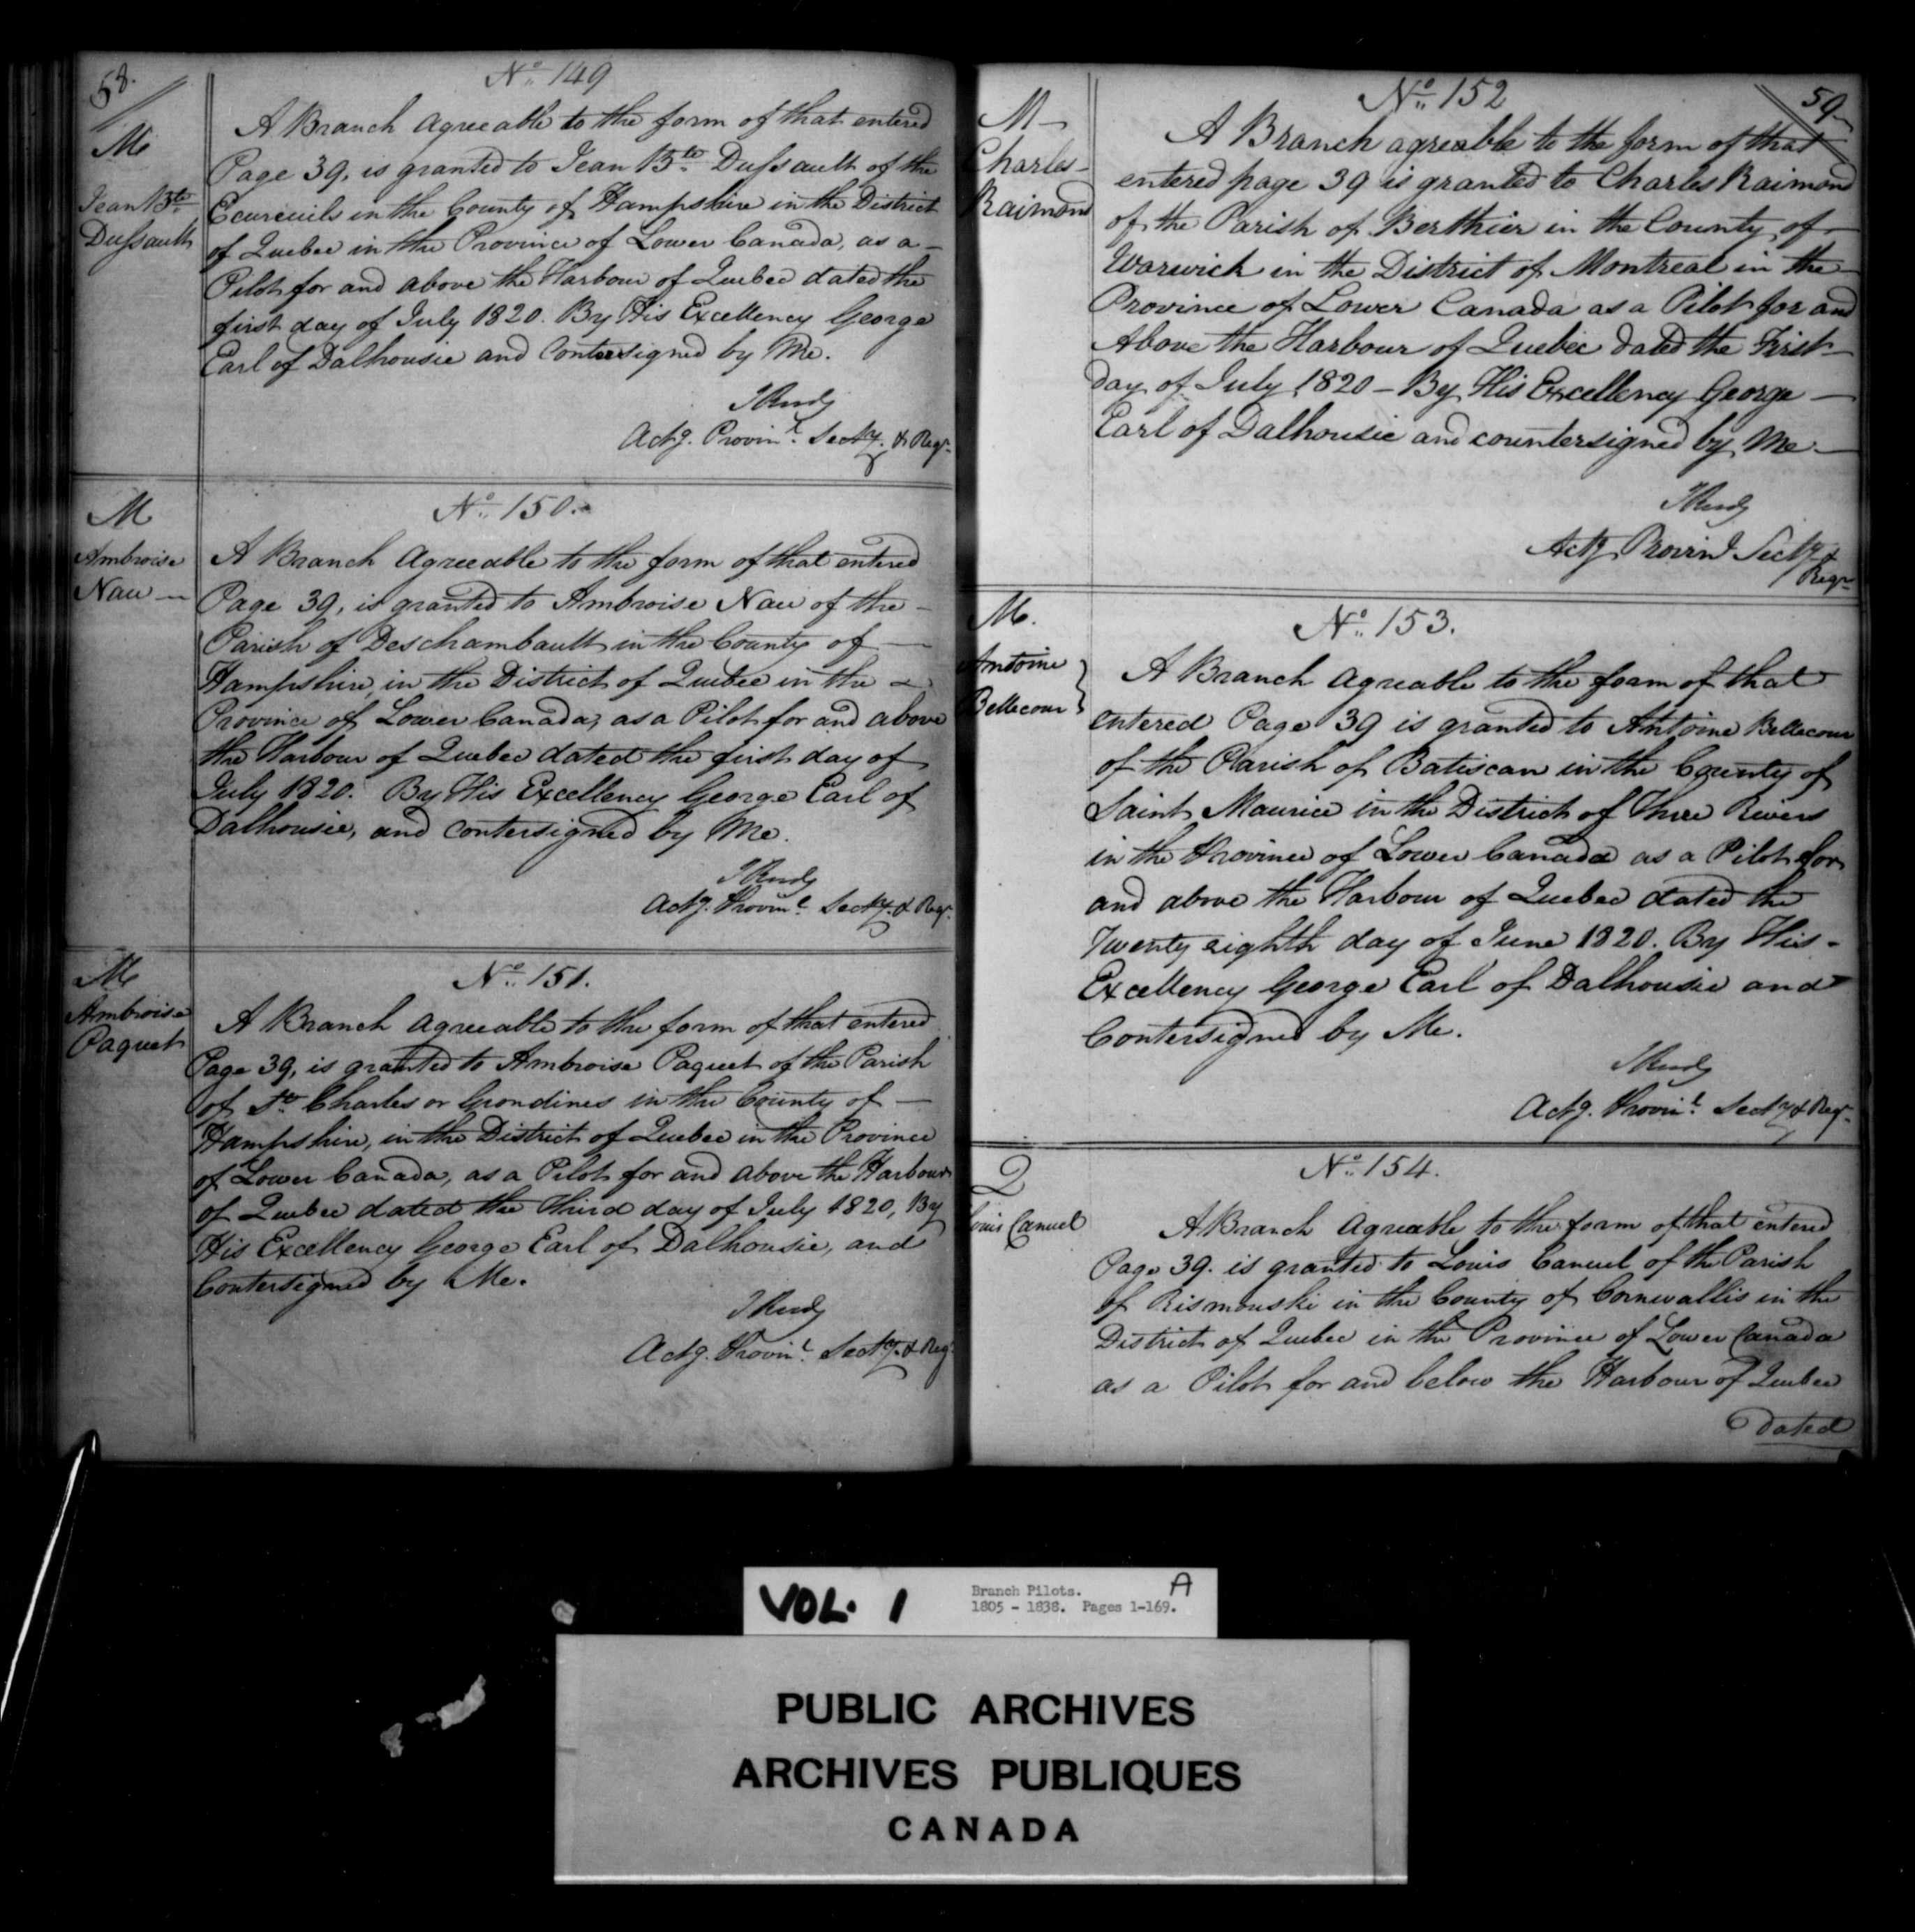 58.
No. 149
M
Jean Bte
Dussault
A Branch Agreeable to the form of that entered
Page 39, is granted to Jean Bte. Dussault of the
Ecureuils in the County of Hampshire in the District
of Quebec in the Province of Lower Canada, as a
Pilot for and above the Harbour of Quebec dated the
first day of July 1820. By His Excellency George
Earl of Dalhousie and Contersigned by Me.
Actg. Provinl. Secty. & Regr.
M
Ambroise
Nau
No. 150.
A Branch Agreeable to the form of that entered
Page 39, is granted to Ambroise Nau of the
Parish of Deschambault in the County of
Hampshire, in the District of Quebec in the
Province of Lower Canada, as a Pilot for and above
the Harbour of Quebec dated the first day of
July 1820. By His Excellency George Earl of
Dalhousie, and Contersigned by Me.
Actg. Provinl. Secty. & Regr.
M
Ambroise
Paquet
No. 151.
A Branch Agreeable to the form of that entered
Page 39, is granted to Ambroise Paquet of the Parish
of St. Charles or Grondines in the County of
Hampshire, in the District of Quebec in the Province
of Lower Canada, as a Pilot for and above the Harbour
of Quebec dated the Third day of July 1820, By
His Excellency George Earl of Dalhousie, and
Contersigned by Me.
Actg. Provinl. Secty. & Regr.
59
No. 152
M
Charles
Raimond
A Branch agreable to the form of that
entered page 39 is granted to Charles Raimond
of the Parish of Berthier in the County of
Warwick in the District of Montreal in the
Province of Lower Canada as a Pilot for and
Above the Harbour of Quebec dated the First
day of July 1820 - By His Excellency George
Earl of Dalhousie and countersigned by Me
Actg Provinl Secty &
Regr
M.
Antoine
Bellecour
No. 153.
A Branch Agreable to the form of that
entered Page 39 is granted to Antoine Bellecour
of the Parish of Batiscan in the County of
Saint Maurice in the District of Three Rivers
in the Province of Lower Canada as a Pilot for
and above the Harbour of Quebec dated the
Twenty eighth day of June 1820. By His
Excellency George Earl of Dalhousie and
Contersigned by Me.
Actg. Provinl. Secty & Regr.
2
Louis Canuel
No. 154.
A Branch Agreable to the form of that entered
Page 39. is granted to Louis Canuel of the Parish
of Rismouski in the County of Cornwallis in the
District of Quebec in the Province of Lower Canada
as a Pilot for and below the Harbour of Quebec
dated
VOL. 1
Branch Pilots. A
1805 - 1838. Pages 1-169.
PUBLIC ARCHIVES
ARCHIVES PUBLIQUES
CANADA